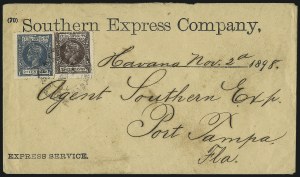 (70)
Southern Express Company,
Havana Nov. 2d 1898.
Agent Southern Exp.
Port Tampa.
Fla.
EXPRESS SERVICE.